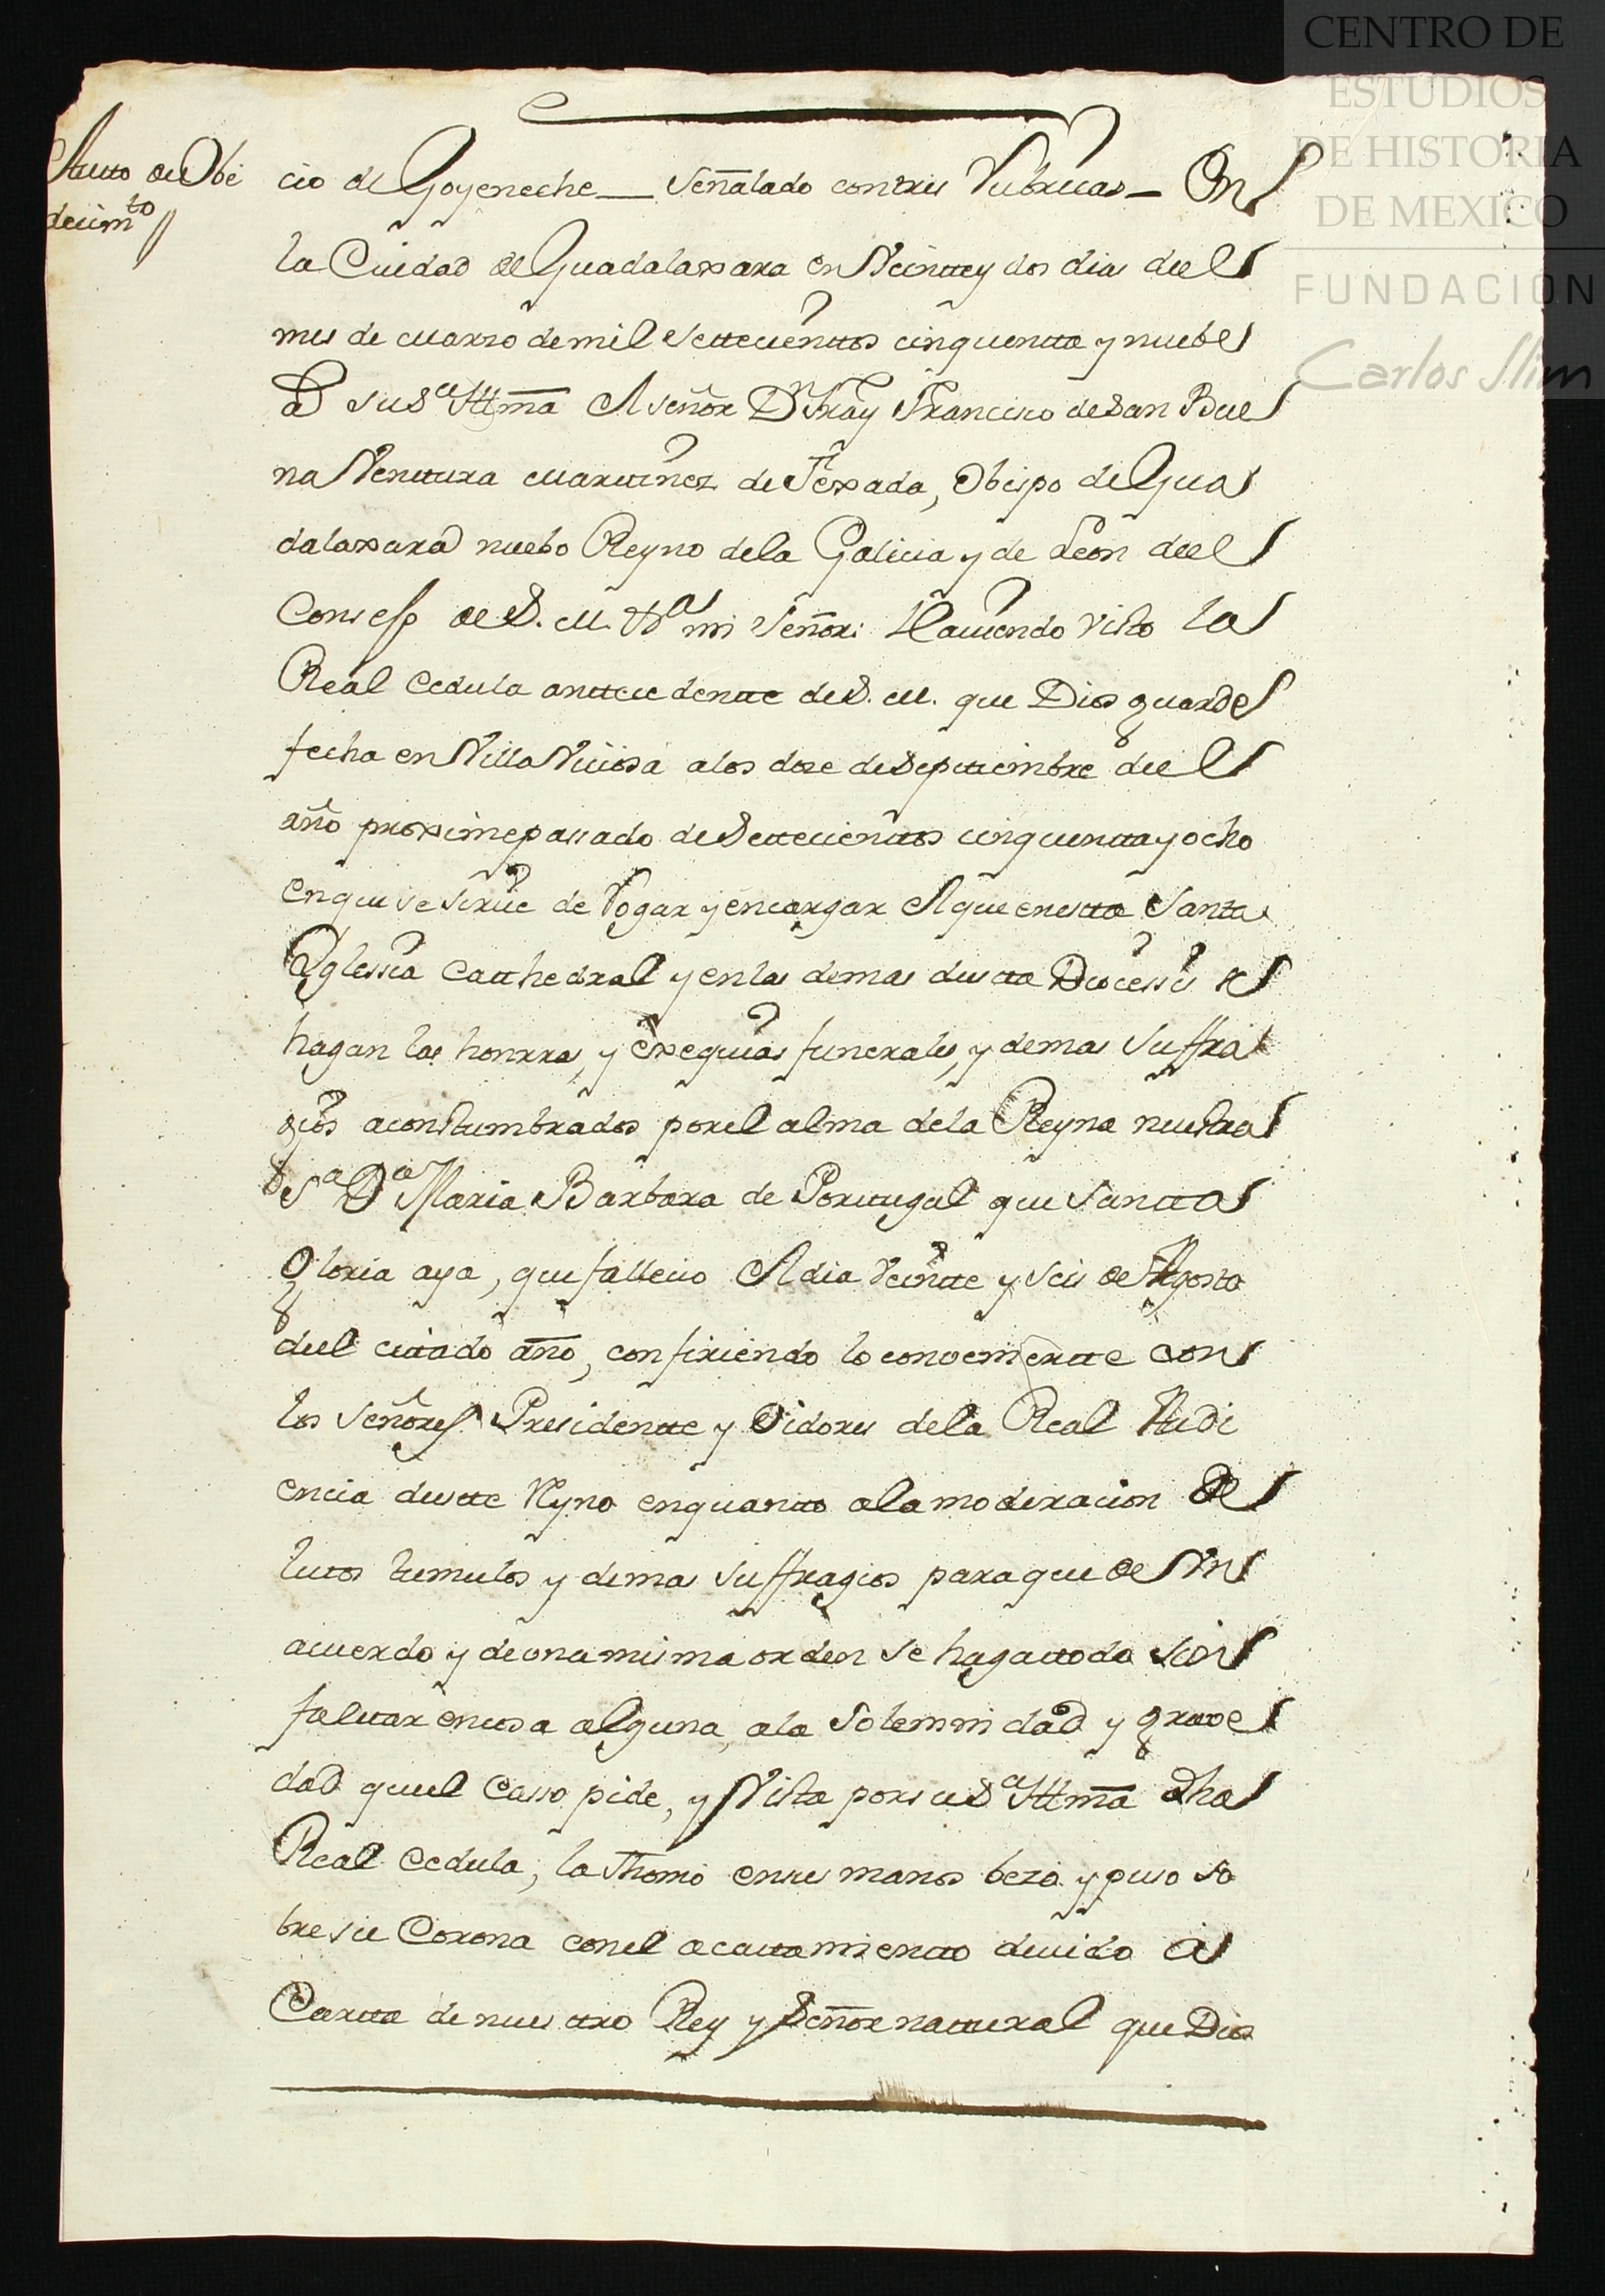 Auto de Obe
decim.to
cio de Goyeneche — Señalado con tres Rubricas — En
la Ciudad de Guadalaxara en Veintte y dos dias de el
mes de Marzo de mil Settecienttos cinquentta y nuebe
Su S.a Ittmã El Señor D.n Fray Francisco de San Bue
na Venttura Marttinez de Texada, Obispo de Gua
dalaxara nuebo Reyno de la Galicia y de Leon de el
Consejo de S. M. mi Señor: Haviendo Visto la
Real Cedula anttecedentte de S. M. que Dios guarde
fecha en Villa Viciosa a los doze de Septtiembre de el
año proximepassado de Settecienttos cinquentta y ocho
en que se Sirve de Rogar y encargar El que en estta Santa
Yglessia Catthedral y en las demas de estta Diocessis se
hagan las honrras, y exequias funerales, y demas Suffra
gios acostumbrados por el alma de la Reyna nuestra
S.a D.a Maria Barbara de Porttugal que Santta
Gloria aya, que fallecio El dia Veintte y Seis de Agosto
de el cittado año, confiriendo lo convenientte con
los Señores Presidentte y Oidores de la Real Audi
encia de estte Reyno en quantto a la moderacion de
lutos tumulos y demas Suffragios para que de Vn
acuerdo y de una misma orden se haga ttodo sin
falttar en cosa alguna, a la Solemnidad y grave
dad que el Casso pide, y Vista por su S.a Ittmã dha
Real Cedula, la Thomó en sus manos bezó y puso so
bre su Corona con el acattamientto devido a
Cartta de nuesttro Rey y Señor nattural que Dios
CENTRO DE
ESTUDIOS
DE HISTORIA
DE MEXICO
FUNDACION
Carlos Slim